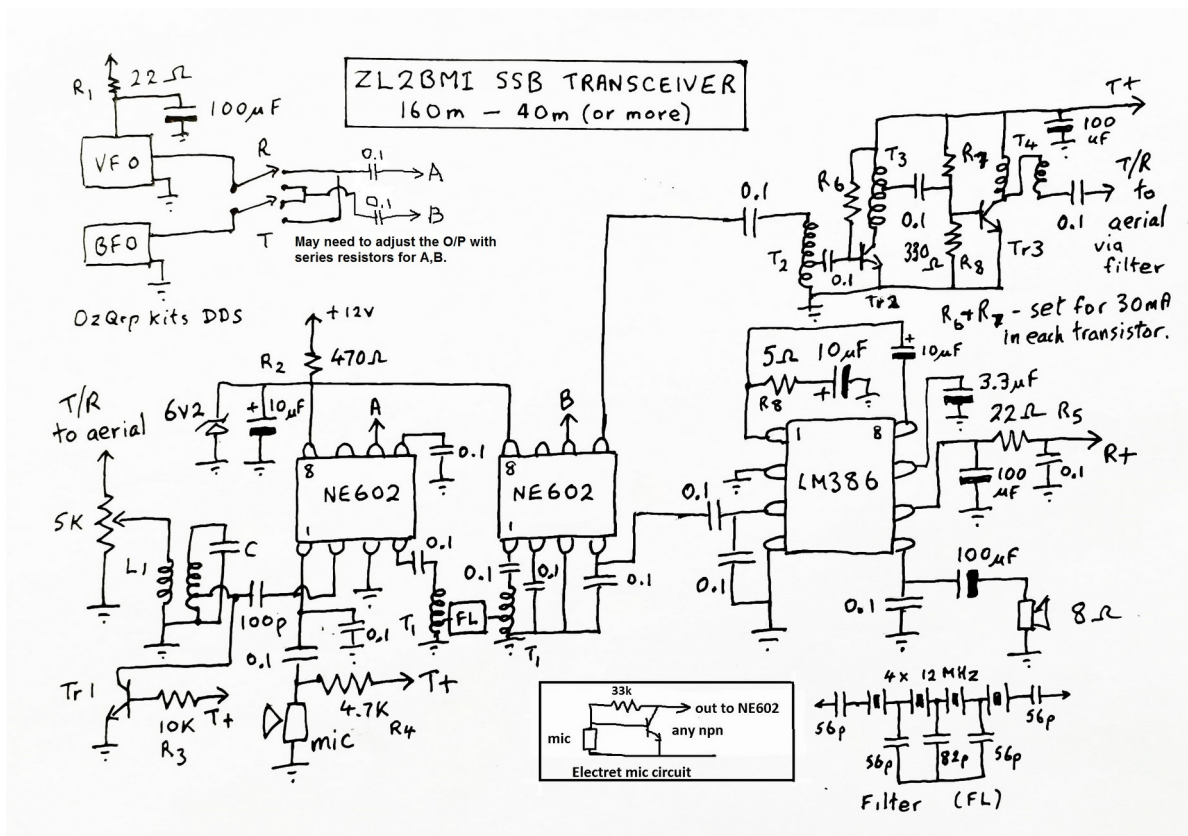 ZL2BMI SSB TRANSCEIVER
160m – 40m (or more)
R1
22 Ω
100μF
VFO
BFO
R
T
0.1
A
0.1
B
May need to adjust the O/P with
series resistors for A,B.
OzQrp kits DDS
T+
100
uF
R6
T3
R7
T4
T/R
to
aerial
via
filter
0.1
0.1
0.1
T2
0.1
330
Ω
R8
Tr2
Tr3
R6+R7 - set for 30mA
in each transistor.
+12V
R2
470Ω
6V2
+
10μF
A
B
0.1
8
NE602
1
8
NE602
1
T/R
to aerial
5K
L1
C
100p
0.1
0.1
T1
FL
0.1
0.1
0.1
T1
0.1
Tr1
10K
R3
T+
4.7K
R4
T+
mic
5Ω
R8
10μF
+
+
10μF
3.3μF
1
8
LM386
22Ω
R5
R+
100
μF
0.1
0.1
0.1
0.1
100μF
8Ω
33k
out to NE602
any npn
mic
Electret mic circuit
4x 12 MHz
56p
56p
56p
82p
56p
Filter (FL)